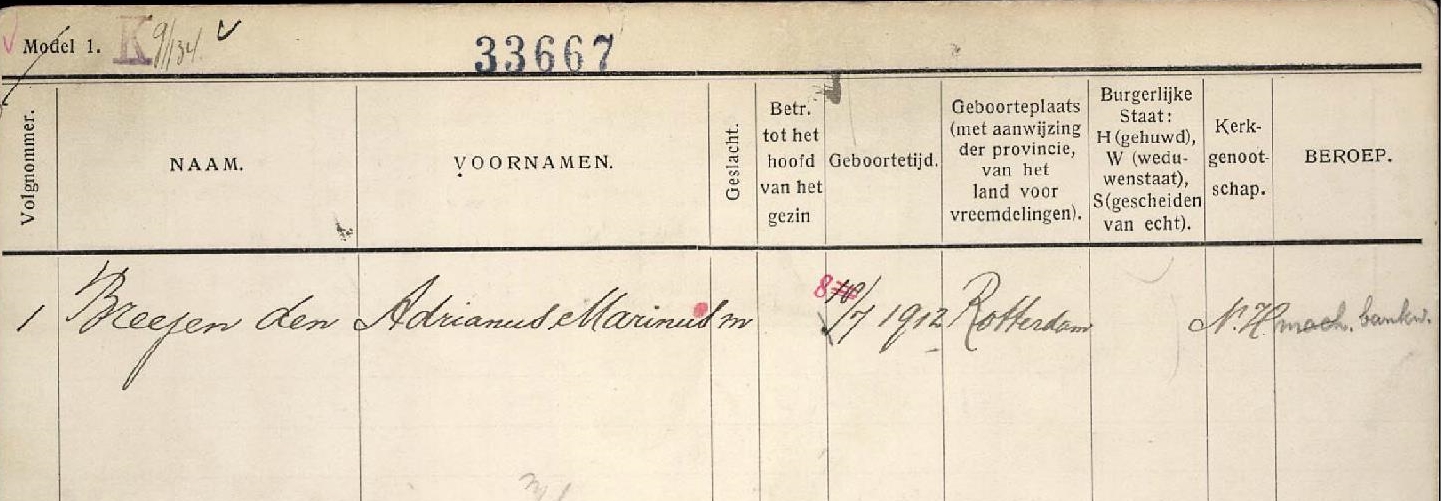 Model 1. K 9/134 33667
Volgnommer.
NAAM.
VOORNAMEN.
Geslacht.
Betr.
tot het
hoofd
van het
gezin
Geboortetijd.
Geboorteplaats
(met aanwijzing
der provincie,
van het
land voor
vreemdelingen).
Burgerlijke
Staat:
H (gehuwd),
W (wedu-
wenstaat),
S (gescheiden
van echt).
Kerk-
genoot-
schap.
BEROEP.
1 Breejen den Adrianus Marinus m 8/7 1912 Rotterdam N.H. mach. bankw.